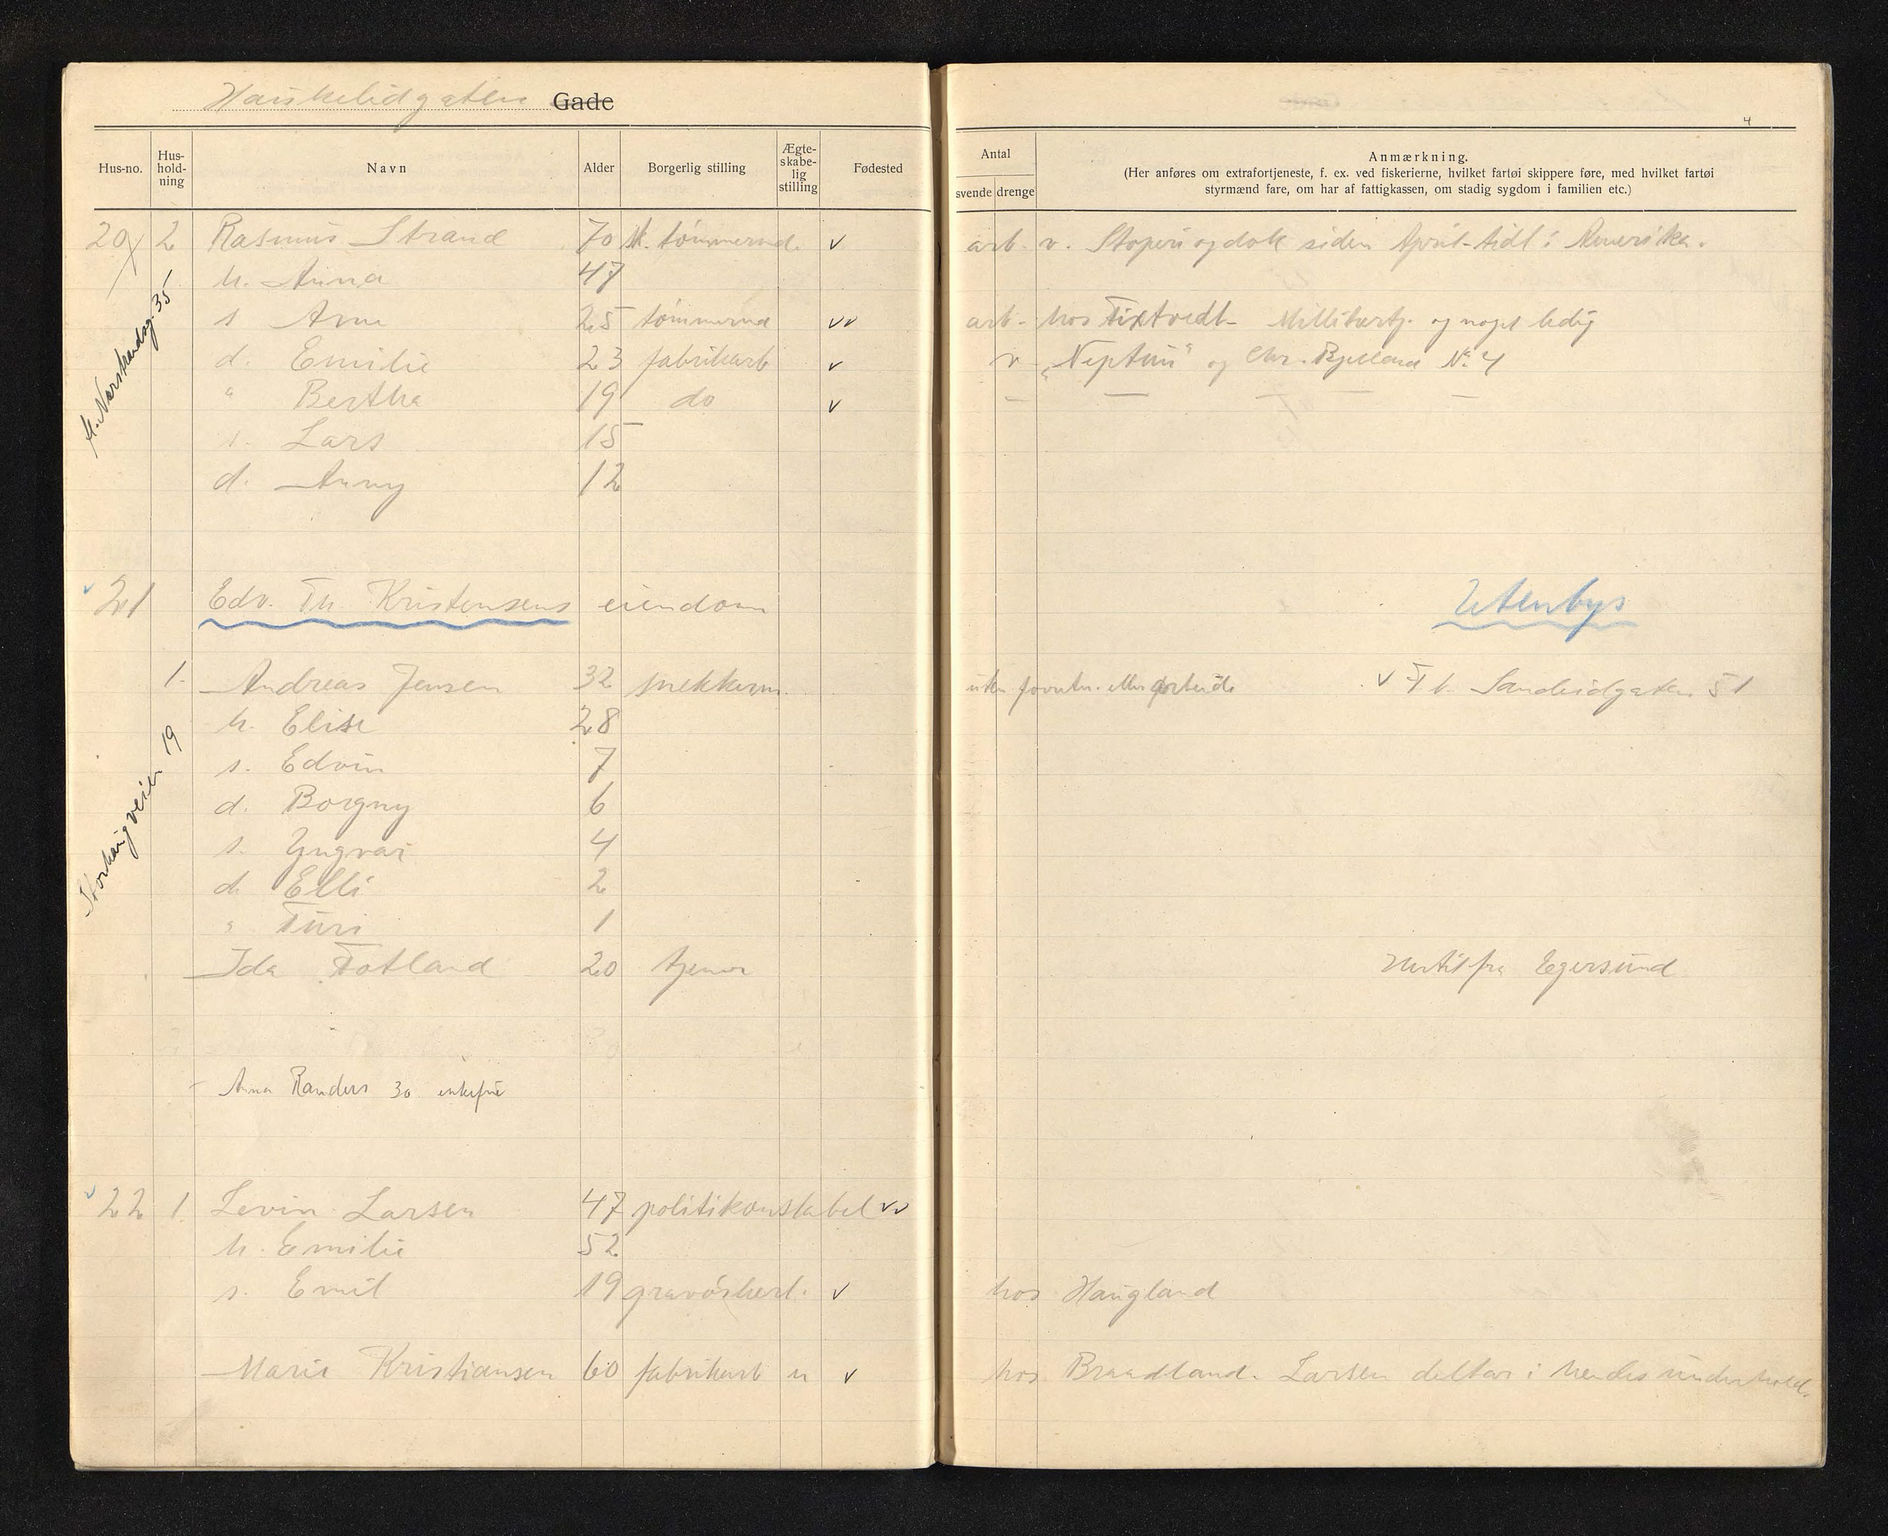 Haukelidgaten Gade
4
Hus-no. Hus-hold-ning Navn Alder Borgerlig stilling Ægte-skabe-lig stilling Fødested Antal svende drenge Anmærkning.
(Her anføres om extrafortjeneste, f. ex. ved fiskerierne, hvilket fartøi skippere føre, med hvilket fartøi
styrmænd fare, om har af fattigkassen, om stadig sygdom i familien etc.)
20 2 Rasmus Strand 70 sk. tømmermd. v arb. v. Støperi og dok siden April - tidl i Amerika.
h. Anna 47
s Arne 25 tømmermd vv arb. hos Tixtvedt - og noget ledig
d. Emilie 23 fabrikarb v v „Neptun" og Chr. Bjelland No. 4
" Bertha 19 do v — — — — —
s. Lars 15
d. Anny 12
M. Nærstrandsg. 35
v 21 Edv. Th. Kristensens eiendom Utenbys
1. Andreas Jensen 32 snekkerm. uten forretn. eller arbeide v F b. Sandeidgaten 51
h. Elise 28
s. Edvin 7
d. Borgny 6
s. Yngvar 4
d. Elli 2
" Turi 1
Ida Fotland 20 tjener Hertil fra Egersund
Storhaugveien 19
Anna Randers 30 enkefrue
v 22 1. Levin Larsen 47 politikonstabel vv
h. Emilie 52
s. Emil 19 gravørlærl. v hos Haugland
Marie Kristiansen 60 fabrikarb u v hos Braadland. Larsen deltar i hendes underhold.